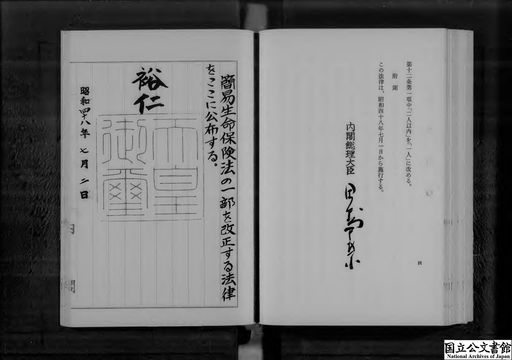 第十二条第一項中「二人以内」を「一人」に改める。
附則
この法律は、昭和四十八年七月一日から施行する。
内閣総理大臣
田中角栄
四
簡易生命保険法の一部を改正する法律
をここに公布する。
裕仁
天皇
御璽
昭和四十八年 七月 二日
国立公文書館
National Archives of Japan